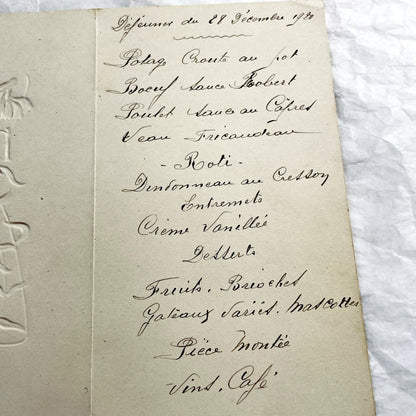 Déjeuner du 28 Décembre 1920
Potag Croute au pot
Boeuf sauce Robert
Poulet sauce au Câpres
Veau Fricaudeau
- Roti -
Dindonneau au Cresson
Entremets
Crème Vanillée
Desserts
Fruits. Brioches
Gateaux Variés. Mascottes
Pièce Montée
Vins. Café